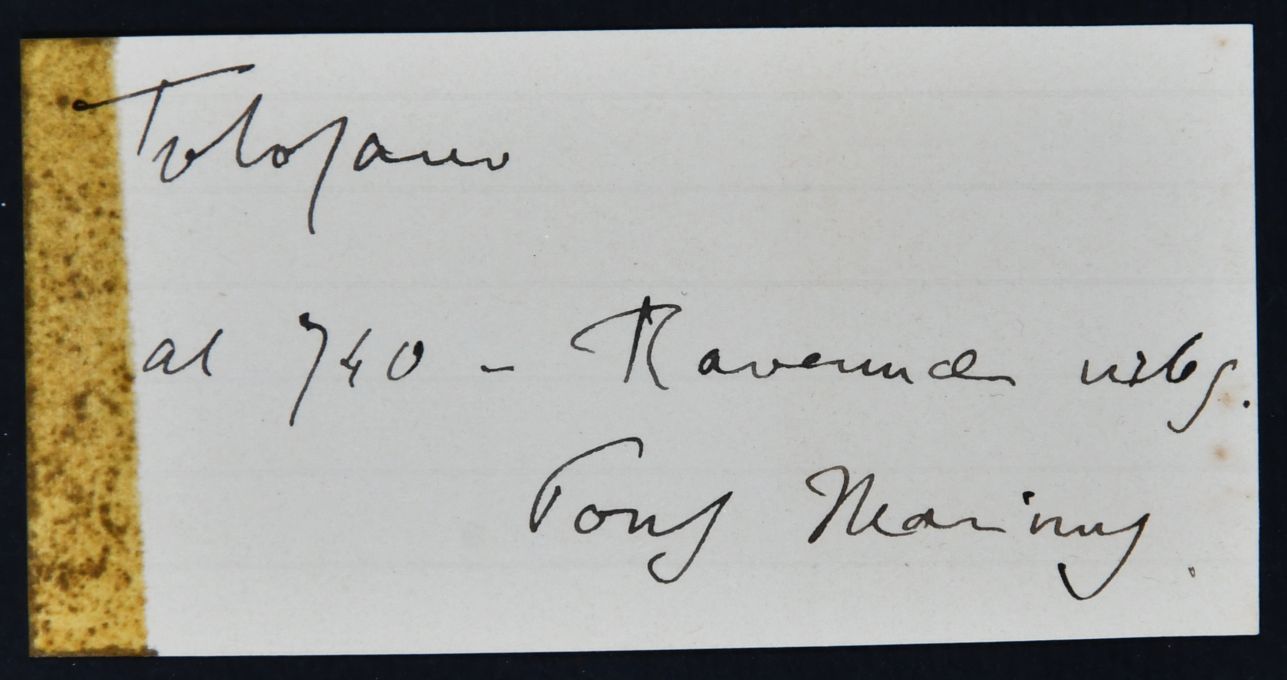 Tolosano
al 740 – Ravennae urbs.
Pons Marinus.